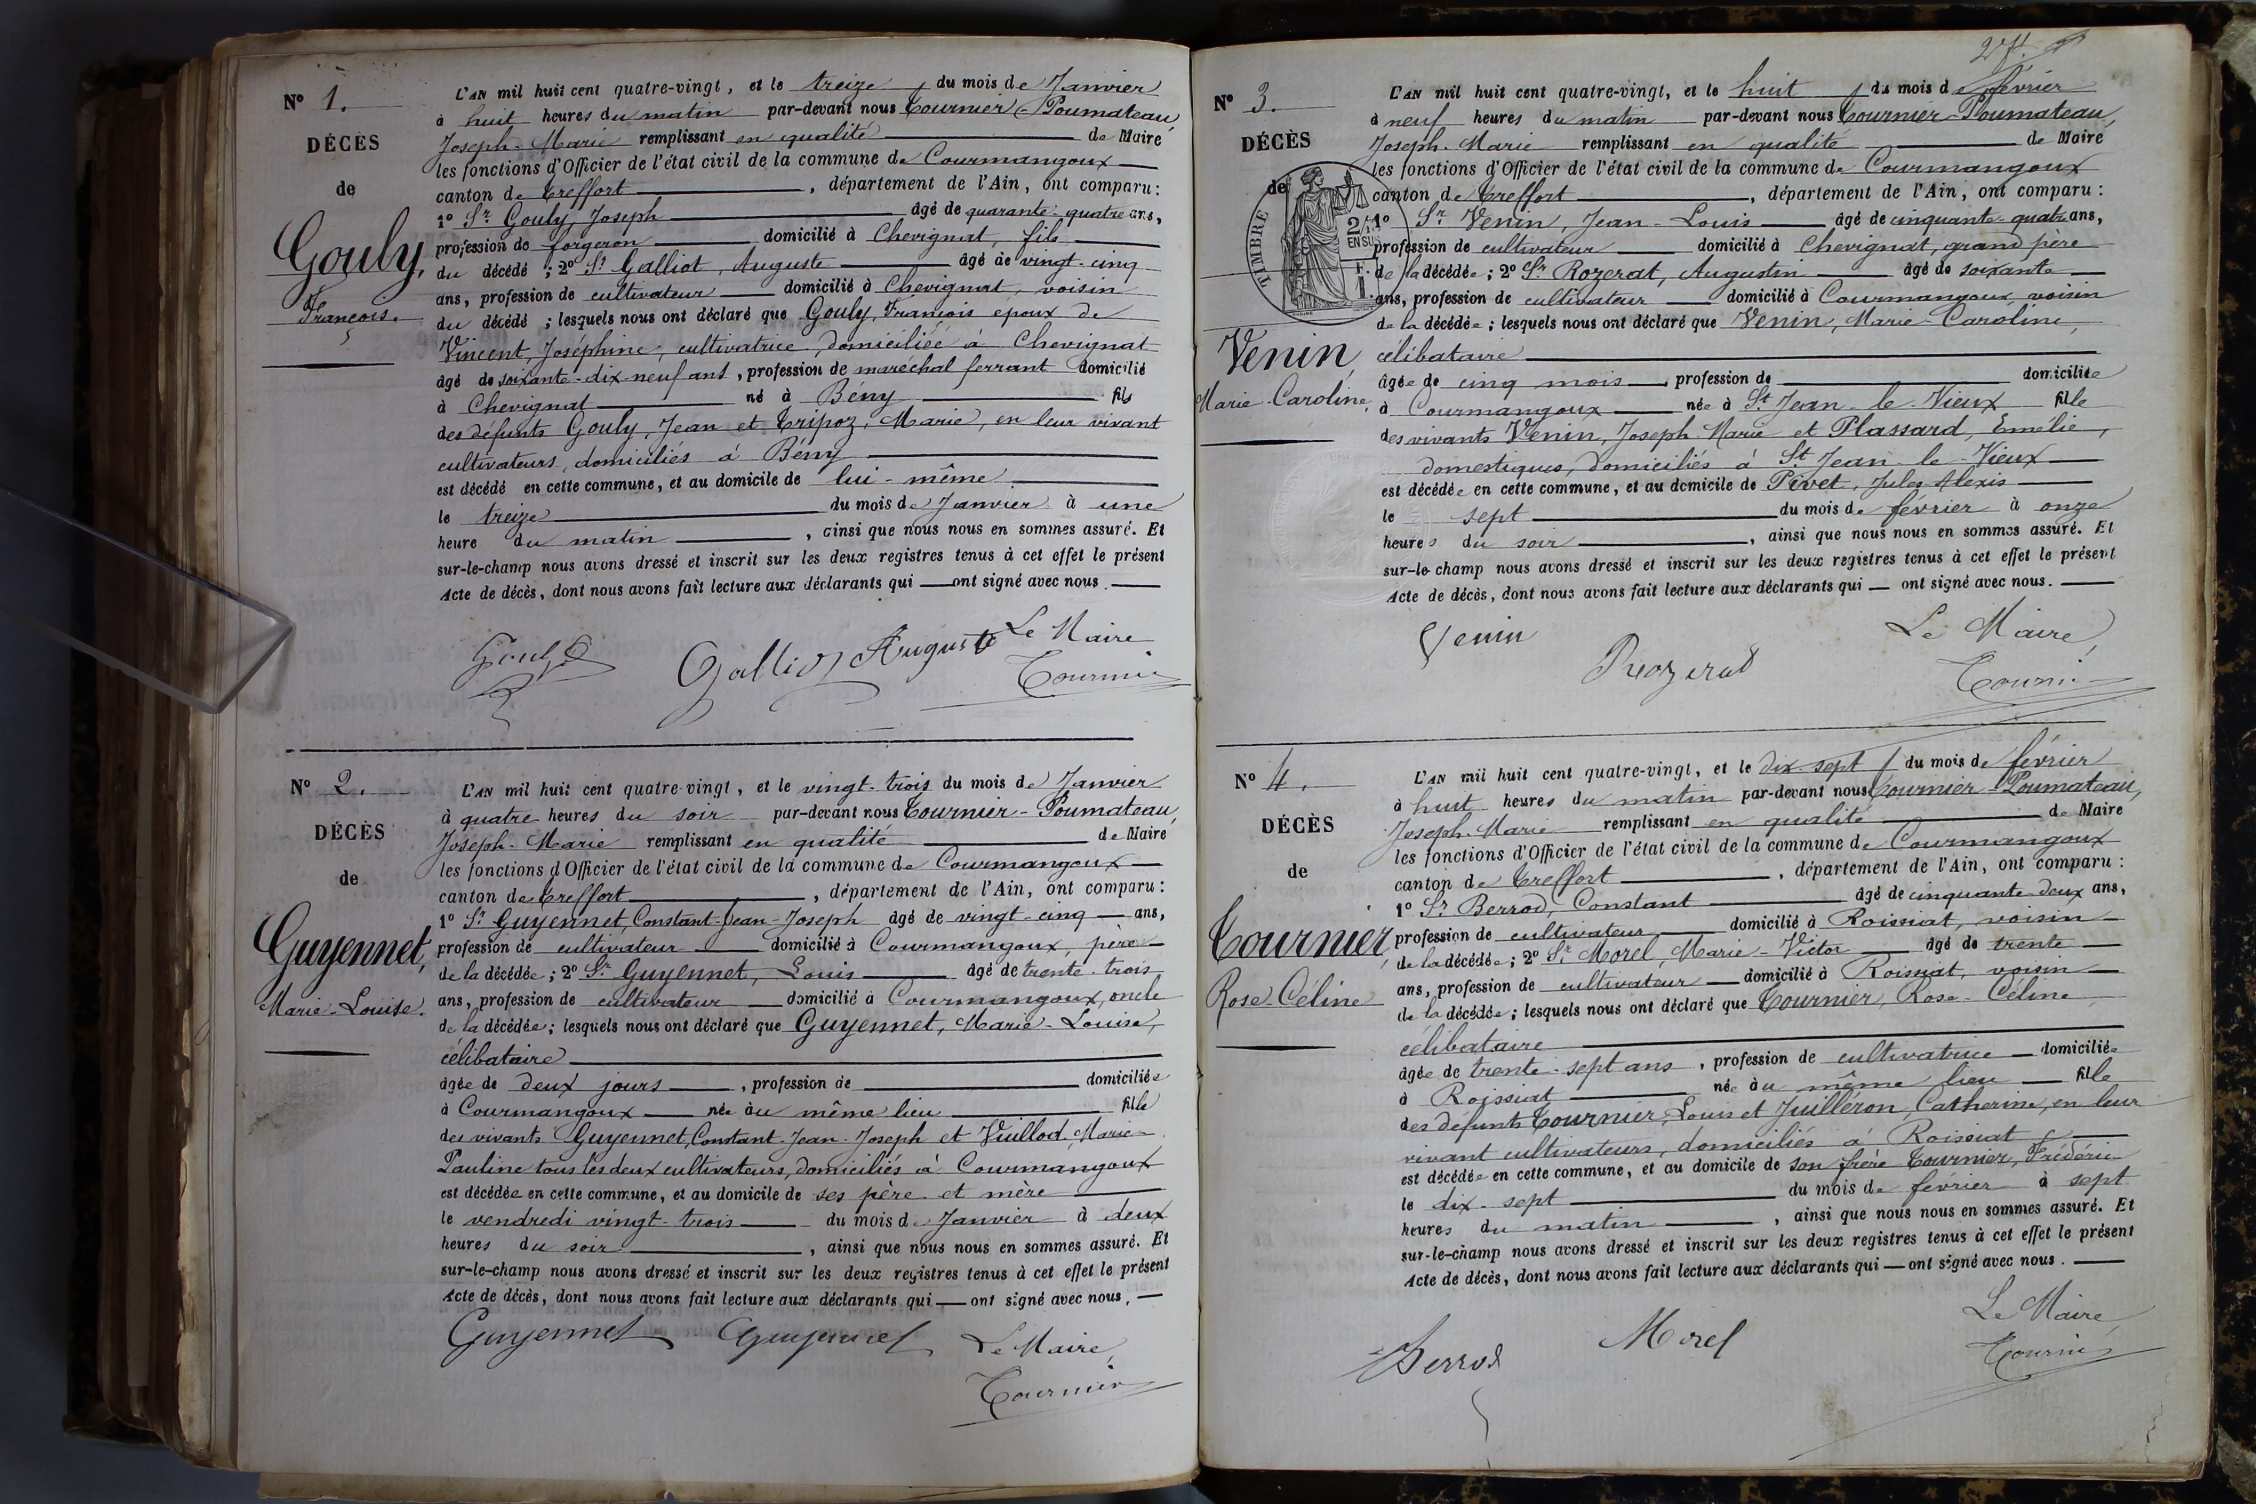 Nº 1.
DÉCÈS
de
Gouly,
François.
L'AN mil huit cent quatre-vingt, et le treize du mois de Janvier
à huit heures du matin par-devant nous Tournier-Poumateau,
Joseph-Marie remplissant en qualité de Maire
les fonctions d'Officier de l'état civil de la commune de Courmangoux
canton de Treffort, département de l'Ain, ont comparu :
1º Sr. Gouly, Joseph âgé de quarante-quatre ans,
profession de forgeron domicilié à Chevignat, fils
du décédé ; 2º Sr. Galliot, Auguste âgé de vingt-cinq
ans, profession de cultivateur domicilié à Chevignat, voisin
du décédé ; lesquels nous ont déclaré que Gouly, François epoux de
Vincent, Joséphine, cultivatrice, domiciliée à Chevignat
âgé de soixante-dix-neuf ans, profession de maréchal ferrant domicilié
à Chevignat né à Bény fils
des défunts Gouly, Jean et Tripoz, Marie, en leur vivant
cultivateurs, domiciliés à Bény
est décédé en cette commune, et au domicile de lui-même
le treize du mois de Janvier à une
heure du matin, ainsi que nous nous en sommes assuré. Et
sur-le-champ nous avons dressé et inscrit sur les deux registres tenus à cet effet le présent
Acte de décès, dont nous avons fait lecture aux déclarants qui ont signé avec nous.
Le Maire
Gouly Galliot Auguste
Tournier
Nº 2.
DÉCÈS
de
Guyennet,
Marie-Louise.
L'AN mil huit cent quatre-vingt, et le vingt-trois du mois de Janvier
à quatre heures du soir par-devant nous Tournier-Poumateau,
Joseph-Marie remplissant en qualité de Maire
les fonctions d'Officier de l'état civil de la commune de Courmangoux
canton de Treffort, département de l'Ain, ont comparu :
1º Sr. Guyennet, Constant-Jean-Joseph âgé de vingt-cinq ans,
profession de cultivateur domicilié à Courmangoux, père
de la décédée ; 2º Sr. Guyennet, Louis âgé de trente-trois
ans, profession de cultivateur domicilié à Courmangoux, oncle
de la décédée ; lesquels nous ont déclaré que Guyennet, Marie-Louise,
célibataire
âgée de deux jours, profession de domiciliée
à Courmangoux née au même lieu fille
des vivants Guyennet, Constant-Jean-Joseph et Vuillod, Marie
Pauline tous les deux cultivateurs, domiciliés à Courmangoux
est décédée en cette commune, et au domicile de ses père et mère
le vendredi vingt-trois du mois de Janvier à deux
heures du soir, ainsi que nous nous en sommes assuré. Et
sur-le-champ nous avons dressé et inscrit sur les deux registres tenus à cet effet le présent
Acte de décès, dont nous avons fait lecture aux déclarants qui ont signé avec nous.
Guyennet Guyennet Le Maire,
Tournier
Nº 3.
DÉCÈS
de
TIMBRE
EN SUS
Venin,
Marie-Caroline,
L'AN mil huit cent quatre-vingt, et le huit du mois de février
à neuf heures du matin par-devant nous Tournier-Poumateau,
Joseph-Marie remplissant en qualité de Maire
les fonctions d'Officier de l'état civil de la commune de Courmangoux
canton de Treffort, département de l'Ain, ont comparu :
1º Sr. Venin, Jean-Louis âgé de cinquante-quatre ans,
profession de cultivateur domicilié à Chevignat, grand père
de la décédée ; 2º Sr. Rozerat, Augustin âgé de soixante
ans, profession de cultivateur domicilié à Courmangoux, voisin
de la décédée ; lesquels nous ont déclaré que Venin, Marie-Caroline,
célibataire
âgée de cinq mois, profession de domiciliée
à Courmangoux née à St. Jean-le-Vieux fille
des vivants Venin, Joseph-Marie et Plassard, Emélie,
domestiques, domiciliés à St. Jean-le-Vieux
est décédée en cette commune, et au domicile de Pivet, Jules Alexis
le sept du mois de février à onze
heures du soir, ainsi que nous nous en sommes assuré. Et
sur-le-champ nous avons dressé et inscrit sur les deux registres tenus à cet effet le présent
Acte de décès, dont nous avons fait lecture aux déclarants qui ont signé avec nous.
Venin Le Maire,
Rozerat
Tournier
Nº 4.
DÉCÈS
de
Tournier,
Rose Céline
L'AN mil huit cent quatre-vingt, et le dix-sept du mois de février
à huit heures du matin par-devant nous Tournier-Poumateau,
Joseph-Marie remplissant en qualité de Maire
les fonctions d'Officier de l'état civil de la commune de Courmangoux
canton de Treffort, département de l'Ain, ont comparu :
1º Sr. Berrod, Constant âgé de cinquante-deux ans,
profession de cultivateur domicilié à Roissiat, voisin
de la décédée ; 2º Sr. Morel, Marie-Victor âgé de trente
ans, profession de cultivateur domicilié à Roissiat, voisin
de la décédée ; lesquels nous ont déclaré que Tournier, Rose-Céline
célibataire
âgée de trente-sept ans, profession de cultivatrice domiciliée
à Roissiat née au même lieu fille
des défunts Tournier, Louis et Juilléron, Catherine, en leur
vivant cultivateurs, domiciliés à Roissiat
est décédée en cette commune, et au domicile de son frère Tournier, Frédéric
le dix-sept du mois de février à sept
heures du matin, ainsi que nous nous en sommes assuré. Et
sur-le-champ nous avons dressé et inscrit sur les deux registres tenus à cet effet le présent
Acte de décès, dont nous avons fait lecture aux déclarants qui ont signé avec nous.
Le Maire,
Berrod Morel
Tournier